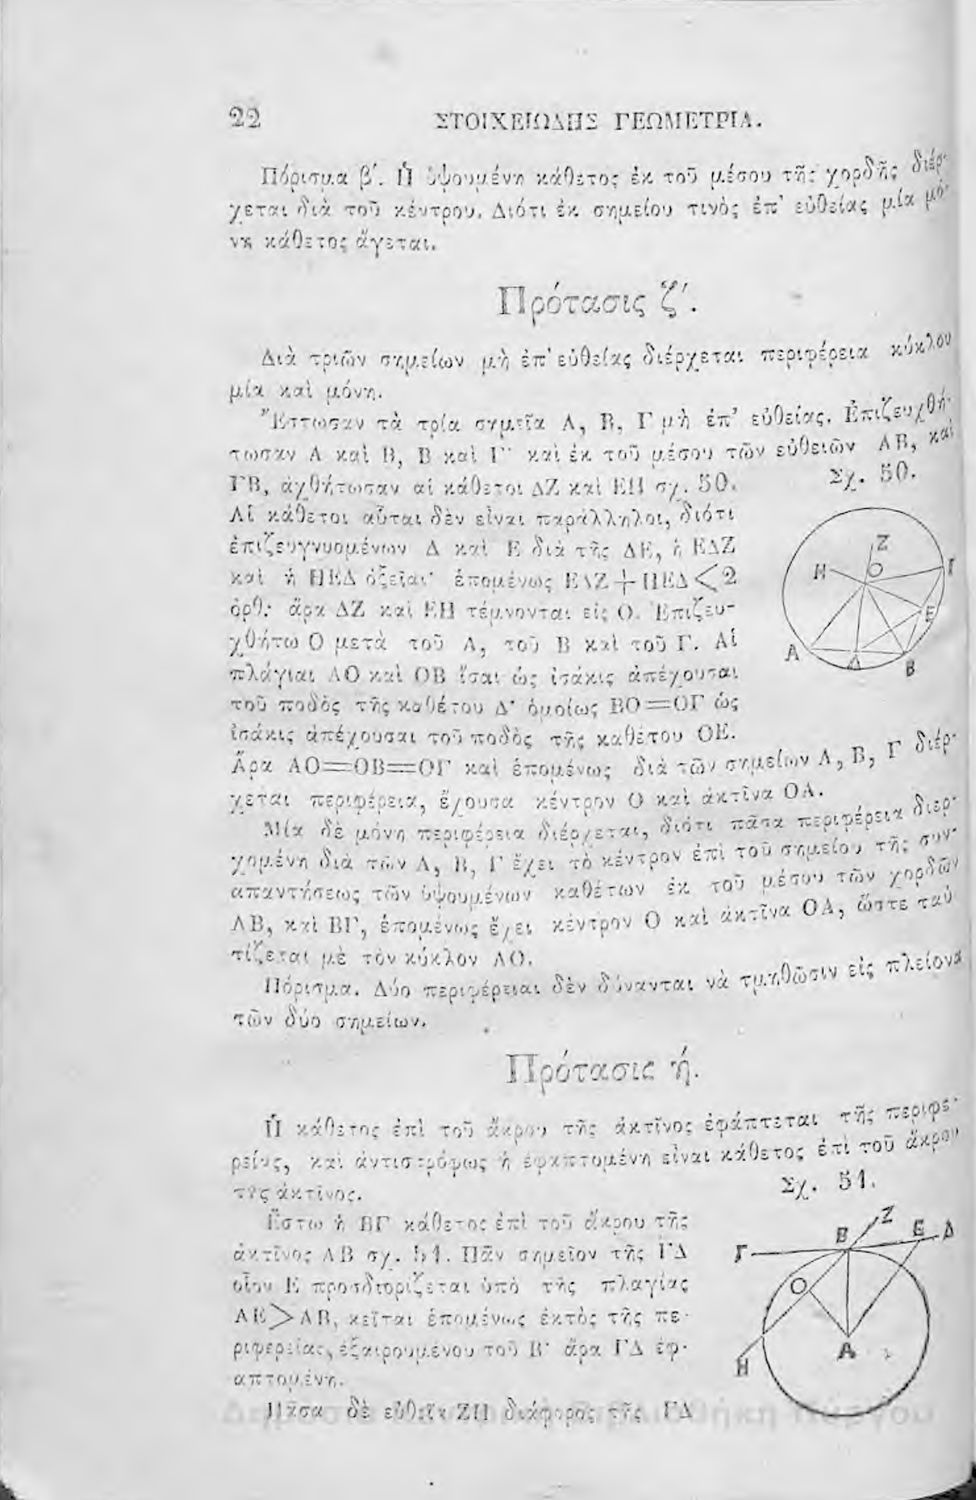 22 ΣΤΟΙΧΕΙΩΔΗΣ ΓΕΩΜΕΤΡΙΑ.
Πόρισμα β΄. Ἡ ὑψουμένη κάθετος ἐκ τοῦ μέσου τῆς χορδῆς διέρ-
χεται διὰ τοῦ κέντρου. Διότι ἐκ σημείου τινὸς ἐπ' εὐθείας μία μό-
νη κάθετος ἄγεται.
Πρότασις ζ΄.
Διὰ τριῶν σημείων μὴ ἐπ' εὐθείας διέρχεται περιφέρεια κύκλου
μία καὶ μόνη.
Ἔστωσαν τὰ τρία σημεῖα Α, Β, Γ μὴ ἐπ' εὐθείας. Ἐπιζευχθή-
τωσαν Α καὶ Β, Β καὶ Γ καὶ ἐκ τοῦ μέσου τῶν εὐθειῶν ΑΒ, καὶ
ΓΒ, ἀχθήτωσαν αἱ κάθετοι ΔΖ καὶ ΕΗ σχ. 50.
Αἱ κάθετοι αὗται δὲν εἶναι παράλληλοι, διότι
ἐπιζευγνυομένων Δ καὶ Ε διὰ τῆς ΔΕ, ἡ ΕΔΖ
καὶ ἡ ΗΕΔ ὀξεῖαι· ἑπομένως ΕΔΖ+ΗΕΔ<2
ὀρθ.· ἄρα ΔΖ καὶ ΕΗ τέμνονται εἰς Ο. Ἐπιζευ-
χθήτω Ο μετὰ τοῦ Α, τοῦ Β καὶ τοῦ Γ. Αἱ
πλάγιαι ΑΟ καὶ ΟΒ ἴσαι ὡς ἰσάκις ἀπέχουσαι
τοῦ ποδὸς τῆς καθέτου Δ· ὁμοίως ΒΟ=ΟΓ ὡς
ἰσάκις ἀπέχουσαι τοῦ ποδὸς τῆς καθέτου ΟΕ.
Ἄρα ΑΟ=ΟΒ=ΟΓ καὶ ἑπομένως διὰ τῶν σημείων Α, Β, Γ διέρ-
χεται περιφέρεια, ἔχουσα κέντρον Ο καὶ ἀκτῖνα ΟΑ.
Μία δὲ μόνη περιφέρεια διέρχεται, διότι πᾶσα περιφέρεια διερ-
χομένη διὰ τῶν Α, Β, Γ ἔχει τὸ κέντρον ἐπὶ τοῦ σημείου τῆς συν-
απαντήσεως τῶν ὑψουμένων καθέτων ἐκ τοῦ μέσου τῶν χορδῶν
ΑΒ, καὶ ΒΓ, ἑπομένως ἔχει κέντρον Ο καὶ ἀκτῖνα ΟΑ, ὥστε ταὐ
τίζεται μὲ τὸν κύκλον ΑΟ.
Πόρισμα. Δύο περιφέρειαι δὲν δύνανται νὰ τμηθῶσιν εἰς πλείονα
τῶν δύο σημείων.
Πρότασις ή.
Ἡ κάθετος ἐπὶ τοῦ ἄκρου τῆς ἀκτῖνος ἐφάπτεται τῆς περιφε-
ρείας, καὶ ἀντιστρόφως ἡ ἐφαπτομένη εἶναι κάθετος ἐπὶ τοῦ ἄκρου
τῆς ἀκτῖνος.
Ἔστω ἡ ΒΓ κάθετος ἐπὶ τοῦ ἄκρου τῆς
ἀκτῖνος ΑΒ σχ. 51. Πᾶν σημεῖον τῆς ΓΔ
οἷον Ε προσδιορίζεται ὑπὸ τῆς πλαγίας
ΑΕ>ΑΒ, κεῖται ἑπομένως ἐκτὸς τῆς πε-
ριφερείας, ἐξαιρουμένου τοῦ Β· ἄρα ΓΔ ἐφ-
απτομένη.
Πᾶσα δὲ εὐθεῖα ΖΗ διάφορος τῆς ΓΔ
Σχ. 50.
Ζ
Η Ο Γ
Ε
Α Δ Β
Σχ. 51.
Ζ
Γ Β Ε Δ
Ο
Α
Η